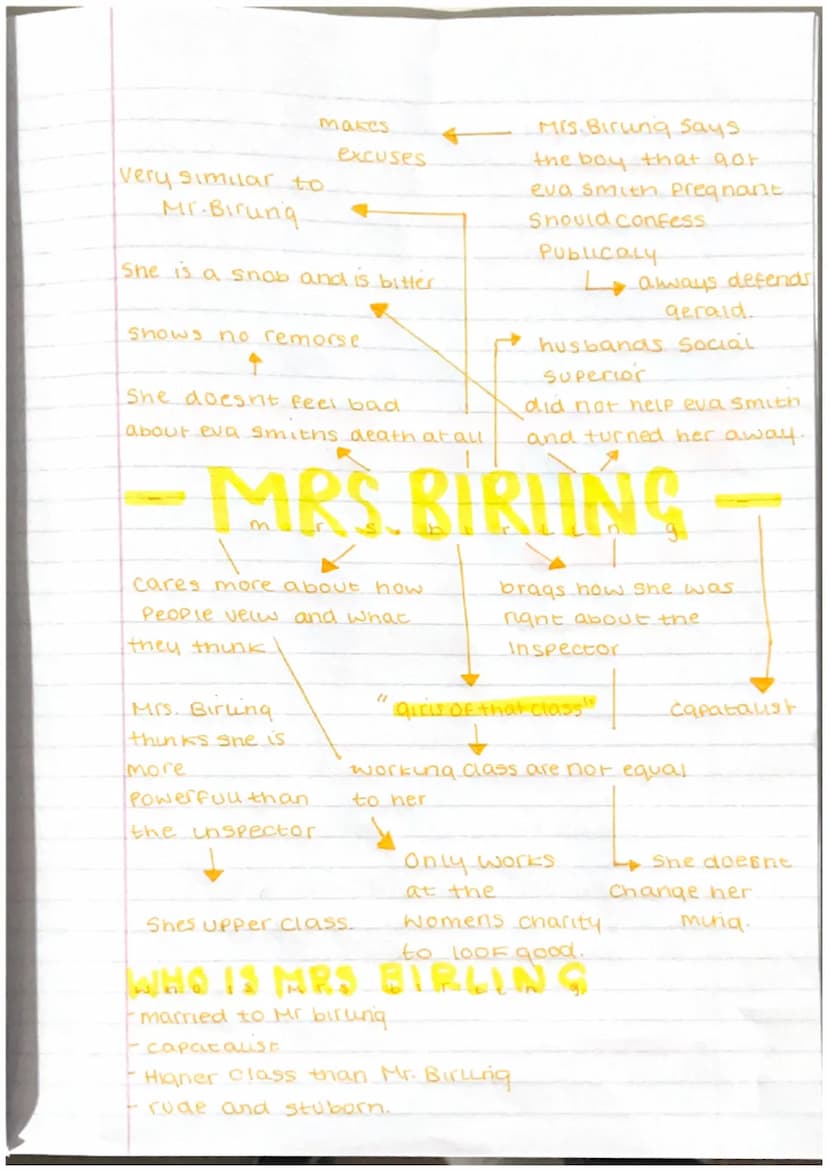 makes
excuses
Mrs. Birling says
the boy that got
eva smith pregnant
should confess
publicaly
always defends
gerald.
very similar to
Mr. Birling
She is a snob and is bitter
shows no remorse
She doesnt feel bad
about eva smiths death at all
husbands social
superior
did not help eva smith
and turned her away.
- MRS. BIRLING -
mrs. birling
cares more about how
people veiw and what
they think
brags how she was
right about the
Inspector
"girls of that class"
capatalist
Mrs. Birling
thinks she is
more
powerfull than
the inspector
working class are not equal
to her
Only works
at the
womens charity
to look good.
She doesnt
change her
mind.
Shes upper class.
WHO IS MRS BIRLING
who is mrs birling
- married to Mr birling
- capatalist
- Higher class than Mr. Birling
- rude and stuborn.